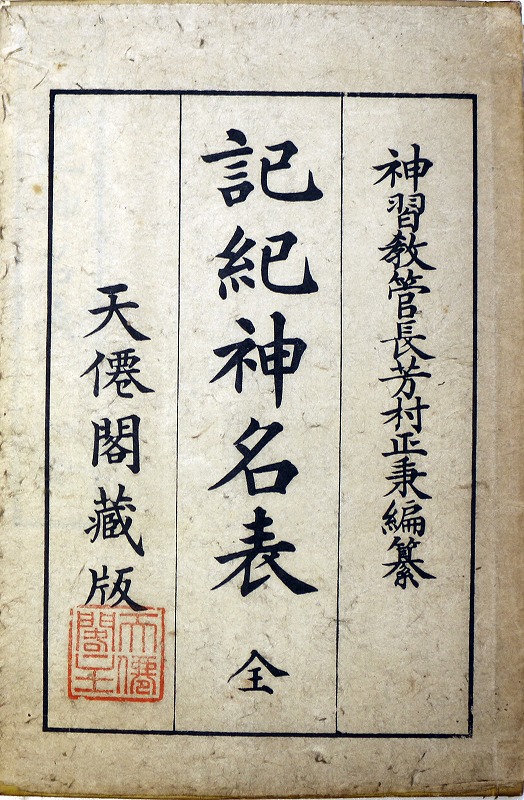 神習教管長芳村正秉編纂
記紀神名表 全
天僊閣藏版
天僊閣主